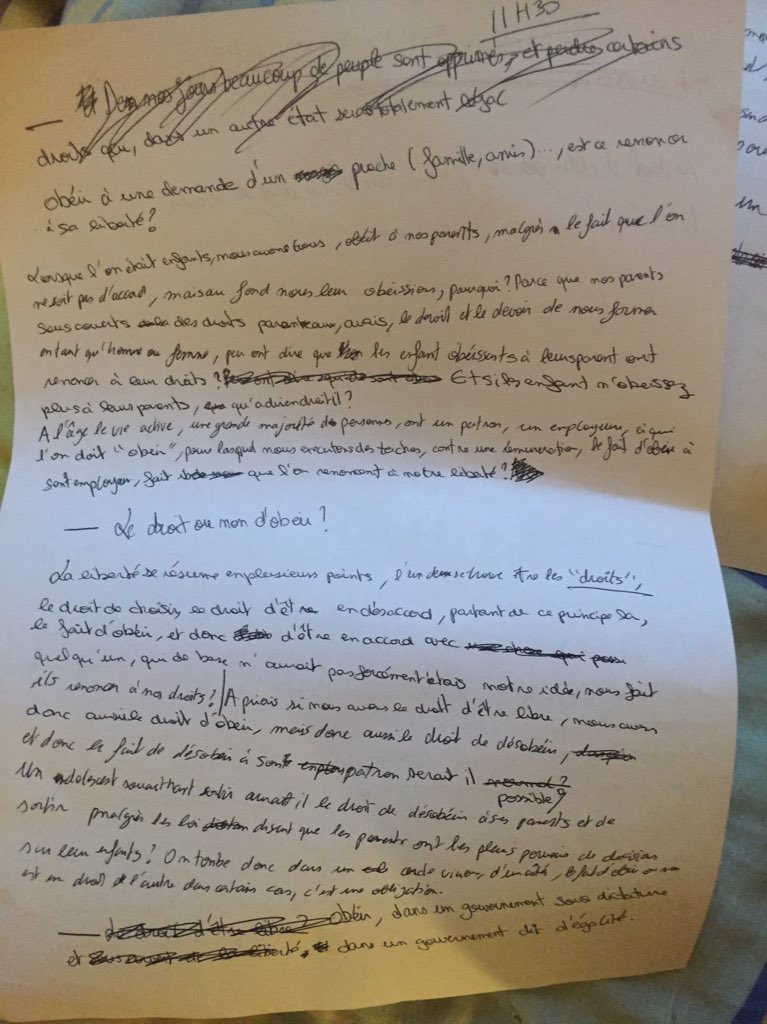 11H30
De nos jours beaucoup de peuple sont opprimés, et certains
droits qui, dans un autre état totalement légal
obéir à une demande d'un proche (famille, amis)..., est ce renoncer
à sa liberté?
Lorsque l'on était enfants, nous avons tous, obéit à nos parents, malgrès le fait que l'on
ne soit pas d'accord, mais au fond nous leur obéissions, pourquoi? Parce que nos parents
sous couverts des droits parentaux, avais, le droit et le devoir de nous former
entant qu'homme ou femme, peu ont dire que les enfant obéissents à leurs parent ont
renoncer à leur droits? Et si les enfant n'obeissez
plus à leurs parents, qu'adviendrait il?
A l'âge le vie active, une grande majorité de personnes, ont un patron, un employeur, à qui
l'on doit "obéir", pour lasquel nous executons des taches, contre une rémunération, le fait d'obéir à
sont employeur, fait que l'on renoncent à notre liberté?
— Le droit ou non d'obéir?
La liberté se résume en plusieurs points, l'un deux se trouve être les "droits",
le droit de choisir, le droit d'être en désaccord, partant de ce principe la,
le fait d'obéir, et donc d'être en accord avec
quelqu'un, qui de base n'aurait pas forcément étais notre idée, nous fait
ils renoncer à nos droits? A priais si nous avons le droit d'être libre, nous avons
donc aussi le droit d'obéir, mais donc aussi le droit de désobéir,
et donc le fait de désobéir à sont patron serait il possible?
Un adolescent souhaittant sortir aurait il le droit de désobéir à ses parents et de
sortir malgrès les loi disent que les parents ont les pleins pouvoirs de décision
sur leur enfants? On tombe donc dans un cercle vicieux d'un côté, le fait d'obéir ou non
est un droit de l'autre dans certain cas, c'est une obligation.
— Le droit d'être libre? Obéir, dans un gouvernement sous dictature
et dans un gouvernement dit d'égalité.